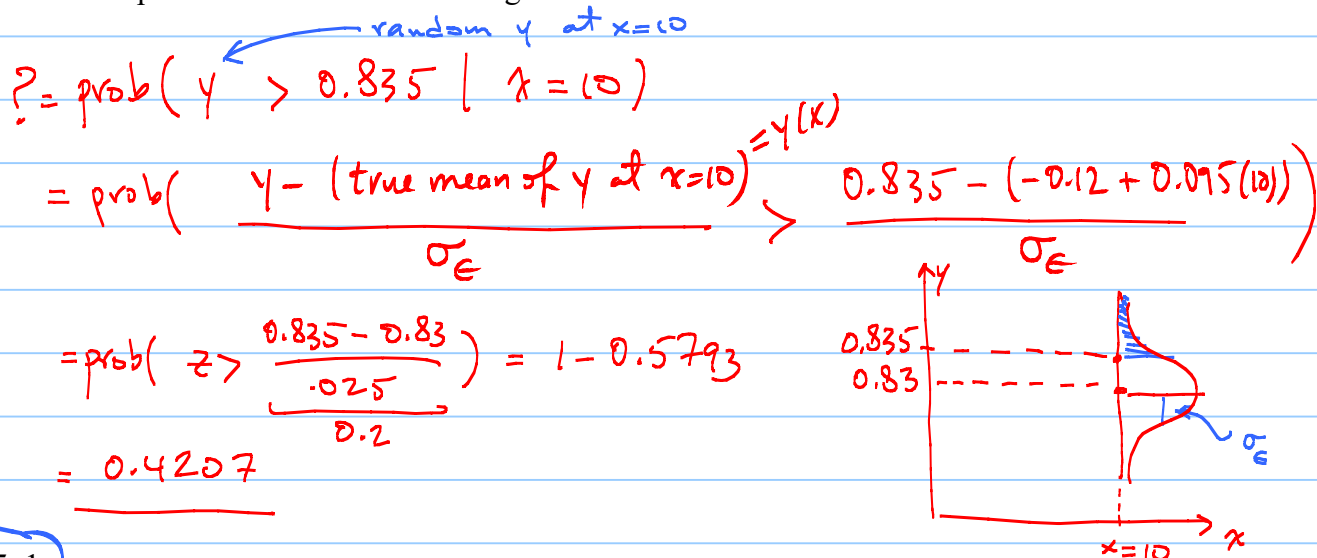 random y at x=10
?= prob( y > 0.835 | x=10)
= prob( y - (true mean of y at x=10) =y(x) / σ_ε > 0.835 - (-0.12 + 0.095(10)) / σ_ε )
=prob( z > 0.835-0.83 / .025 ) = 1-0.5793
0.2
= 0.4207
y
0.835
0.83
σ_ε
x
x=10